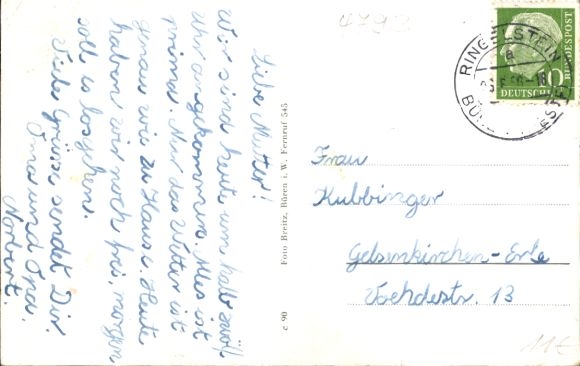 4793
Liebe Mutter!
Wir sind heute um halb zwölf
Uhr angekommen. Alles ist
prima. Nur das Wetter ist
genau wie zu Haus. Heute
haben wir noch frei, morgen
soll es losgehen.
Viele Grüsse sendet Dir
Oma und Opa.
Norbert.
Foto Breitz, Büren i. W. Fernruf 545
c 90
RINGELSTEIN
a
BÜREN
DEUTSCHE
BUNDESPOST
10
Frau
Kubbinger
Gelsenkirchen-Erle
Voehdestr. 13
11€